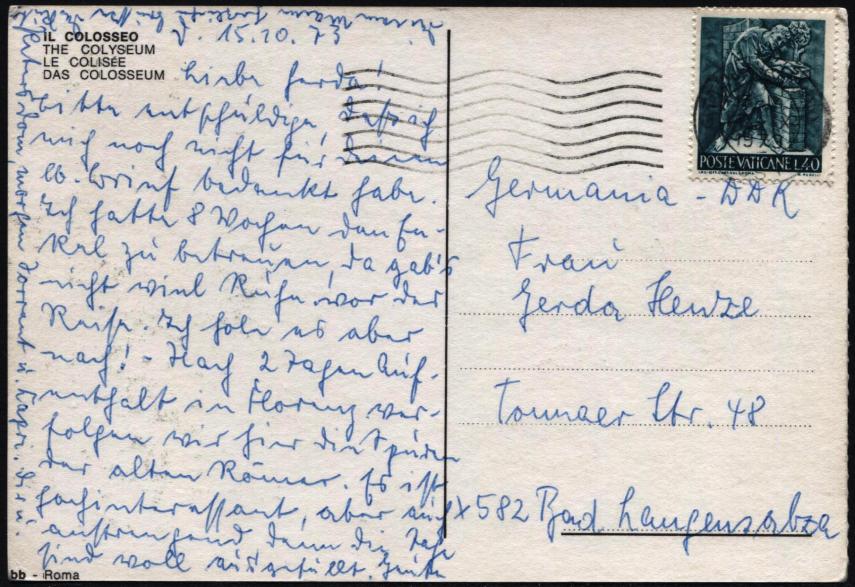 IL COLOSSEO
THE COLYSEUM
LE COLISÉE
DAS COLOSSEUM
d. 15.10.73
Liebe Gerda!
bitte entschuldige, daß ich
mich noch nicht für Deinen
lb. Brief bedankt habe.
Ich hatte 8 Wochen den En-
kel zu betreuen, da gab's
nicht viel Ruhe vor der
Reise. Ich hole es aber
nach! - Nach 2 Tagen Auf-
enthalt in Florenz ver-
folgen wir hier die Spuren
der alten Römer. Es ist
hochinteressant, aber auch
anstrengend denn die Tage
sind voll ausgefüllt. Heute
Petersdom, morgen Sorrent u. Capri.
bb - Roma
POSTE VATICANE L.40
Germania - DDR
Frau
Gerda Henze
Tonnaer Str. 48
X 582 Bad Langensalza